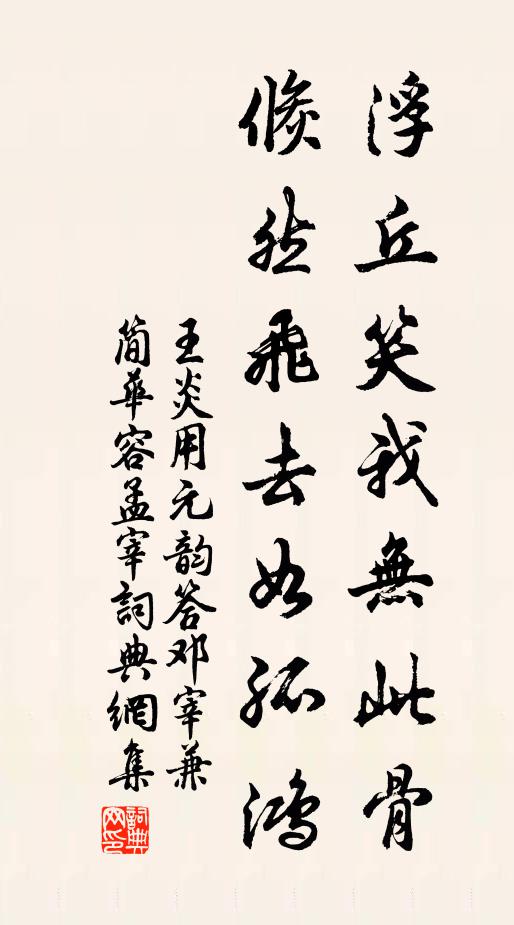 浮丘笑我無此骨
倐然飛去如孤鴻
王炎用元韵答邓宰兼
简華容孟宰詞典網集
詞典网印